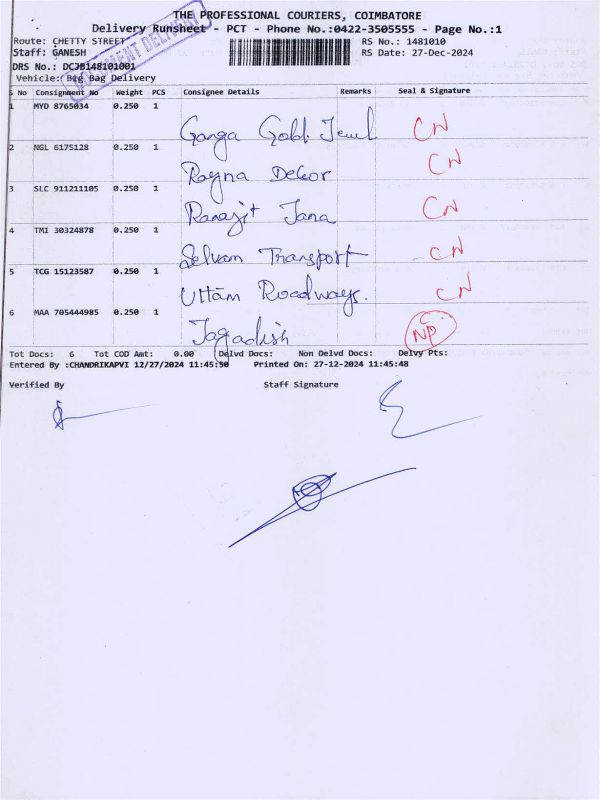 THE PROFESSIONAL COURIERS, COIMBATORE
Delivery Runsheet - PCT - Phone No.:0422-3505555 - Page No.:1
DOCUMENT DELIVERY
Route: CHETTY STREET RS No.: 1481010
Staff: GANESH RS Date: 27-Dec-2024
DRS No.: DCJB148101001
Vehicle: Big Bag Delivery
S No Consignment No Weight PCS Consignee Details Remarks Seal & Signature
1 MYD 8765034 0.250 1 Ganga Gold Jewl CN
2 NGL 6175128 0.250 1 Rayna Decor CN
3 SLC 911211105 0.250 1 Ranajit Jana CN
4 TMI 30324878 0.250 1 Selvam Transport CN
5 TCG 15123587 0.250 1 Uttam Roadways. CN
6 MAA 705444985 0.250 1 Jagadish C NP
Tot Docs: 6 Tot COD Amt: 0.00 Delvd Docs: Non Delvd Docs: Delvy Pts:
Entered By :CHANDRIKAPVI 12/27/2024 11:45:50 Printed On: 27-12-2024 11:45:48
Verified By Staff Signature